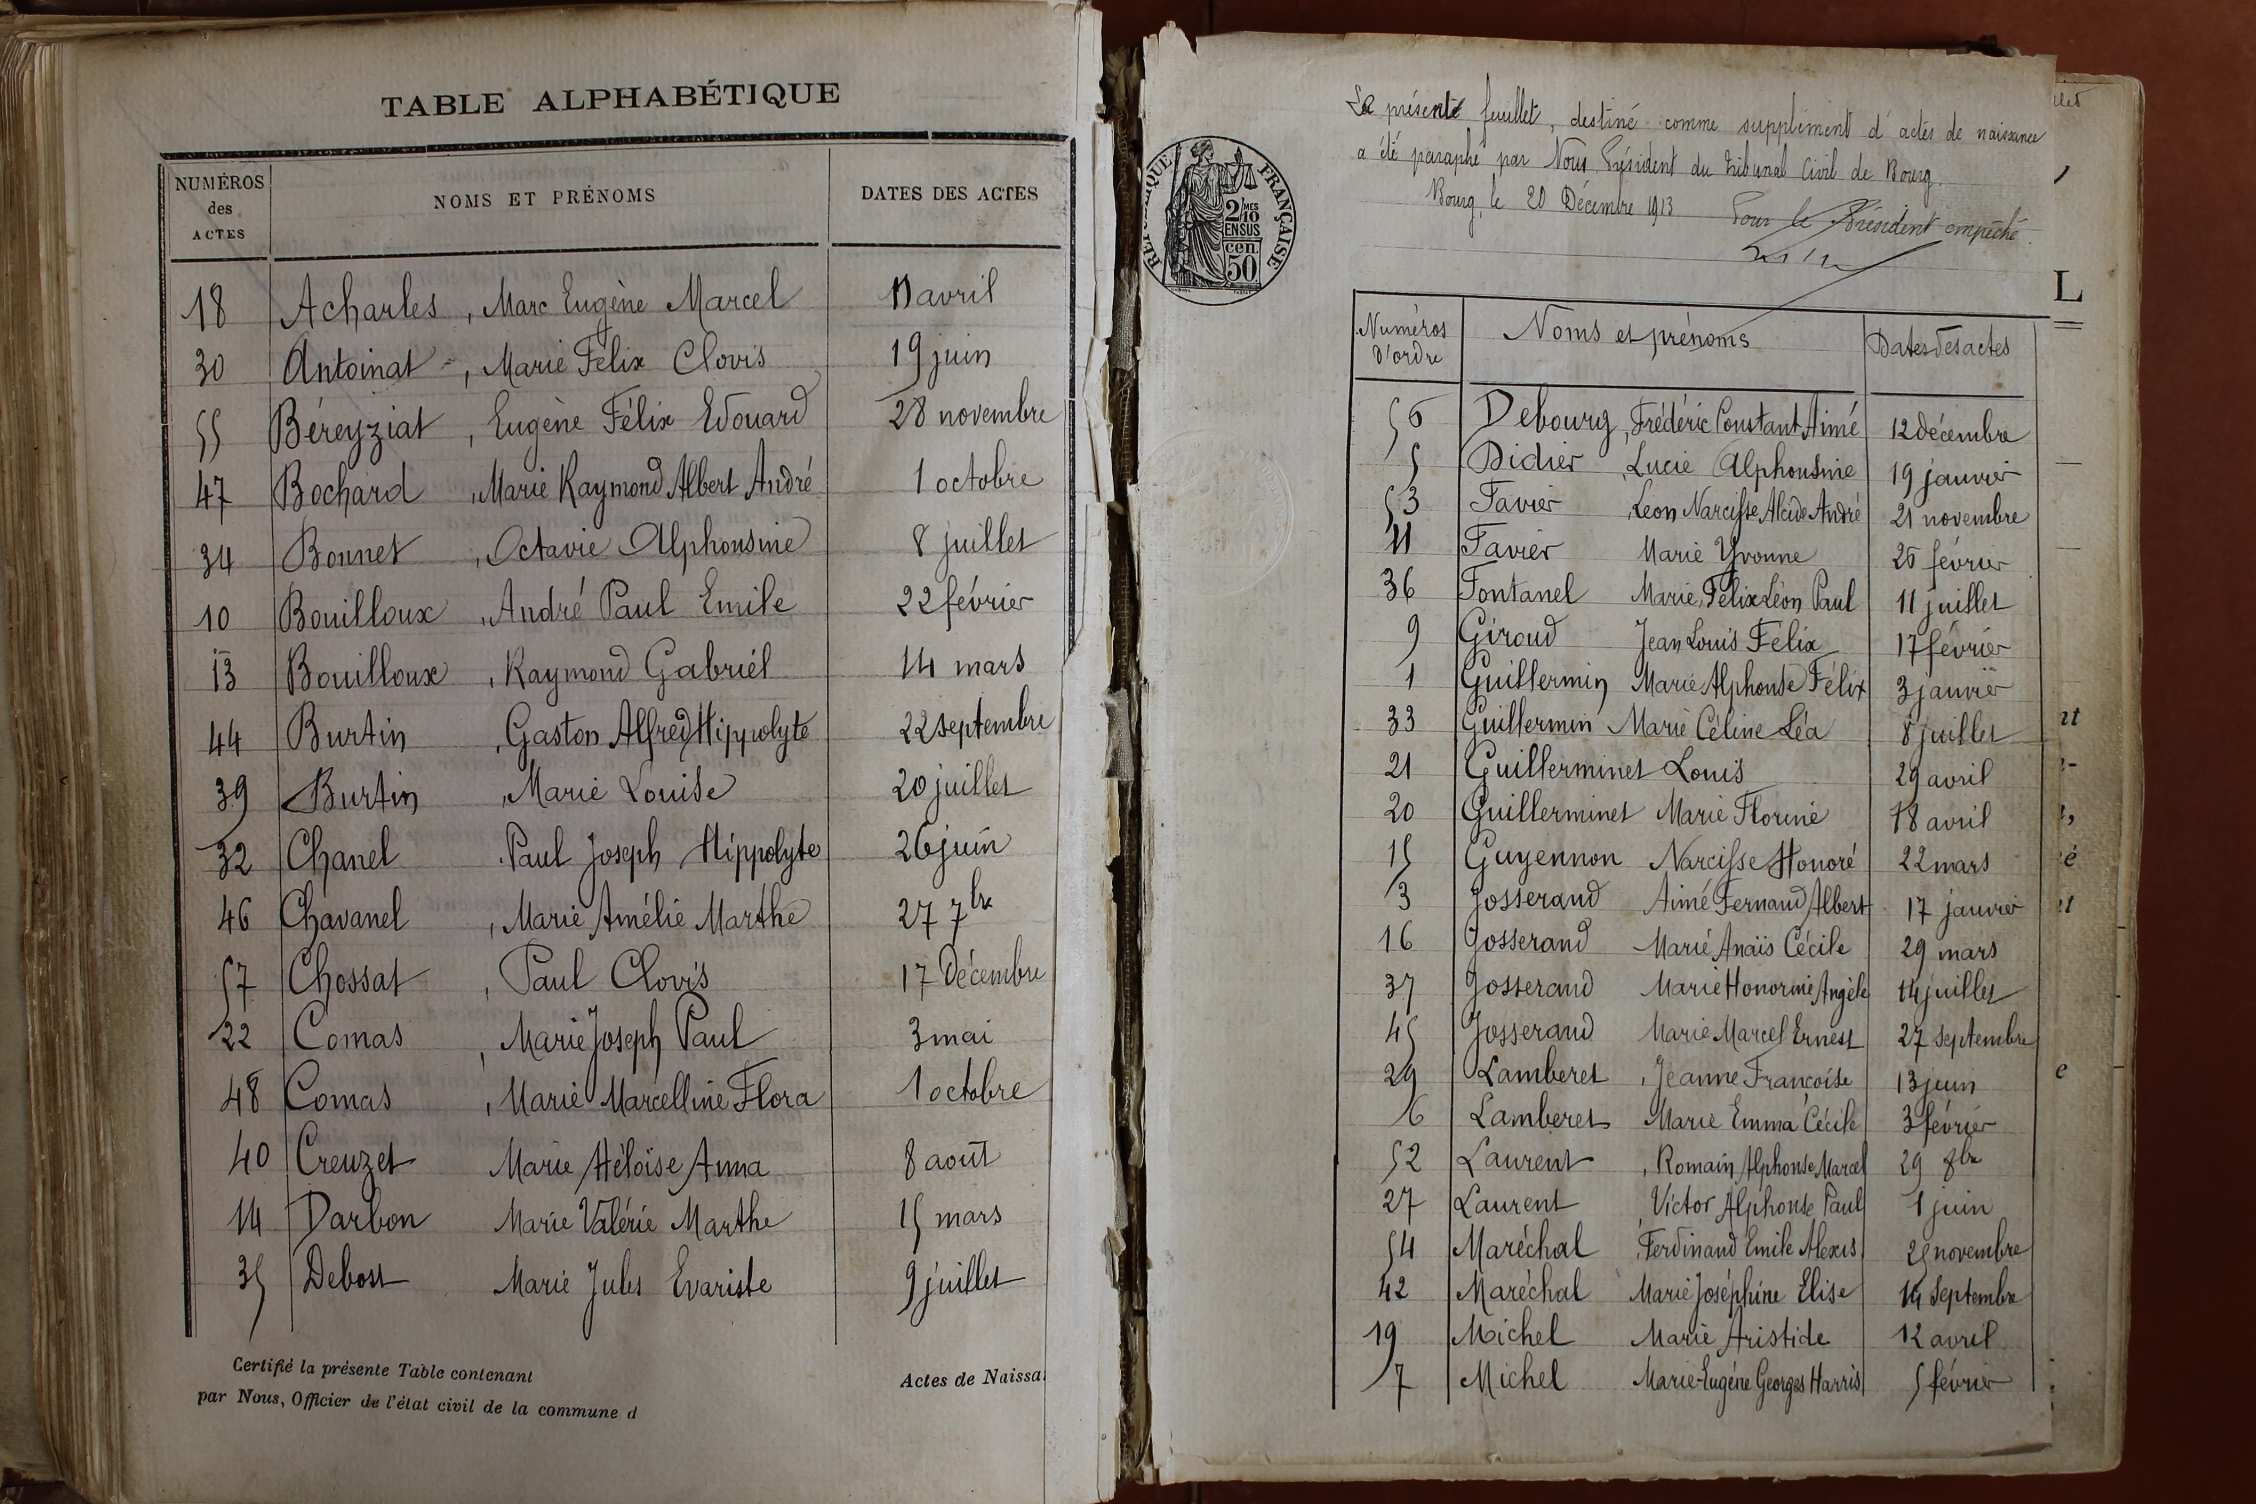 TABLE ALPHABÉTIQUE
NUMÉROS des ACTES NOMS ET PRÉNOMS DATES DES ACTES
18 Acharles, Marc Eugène Marcel 11 avril
30 Antoinat, Marie Félix Clovis 19 juin
55 Béreyziat, Eugène Félix Edouard 28 novembre
47 Bochard, Marie Raymond Albert André 1 octobre
34 Bonnet, Octavie Alphonsine 8 juillet
10 Bouilloux, André Paul Emile 22 février
13 Bouilloux, Raymond Gabriel 14 mars
44 Burtin, Gaston Alfred Hippolyte 22 septembre
39 Burtin, Marie Louise 20 juillet
32 Chanel, Paul Joseph Hippolyte 26 juin
46 Chavanel, Marie Amélie Marthe 27 7bre
57 Chossat, Paul Clovis 17 Décembre
22 Comas, Marie Joseph Paul 3 mai
48 Comas, Marie Marcelline Flora 1 octobre
40 Creuzet Marie Héloïse Anna 8 août
14 Darbon Marie Valérie Marthe 15 mars
35 Debost Marie Jules Evariste 9 juillet
Certifié la présente Table contenant Actes de Naissa
par Nous, Officier de l'état civil de la commune d
Le présente feuillet, destiné comme supplément d'actes de naissance
a été paraphé par Nous, Président du Tribunal Civil de Bourg.
Bourg, le 20 Décembre 1913
Pour le Président empêché.
RÉPUBLIQUE FRANÇAISE
2/10MES
EN SUS
cen.
50
Numéros d'ordre Noms et prénoms Dates des actes
56 Debourg, Frédéric Constant Aimé 12 décembre
5 Didier, Lucie Alphonsine 19 janvier
53 Favier, Léon Narcisse Alcide André 21 novembre
11 Favier Marie Yvonne 26 février
36 Fontanel Marie Félix Léon Paul 11 juillet
9 Giroud Jean Louis Félix 17 février
1 Guillermin Marie Alphonse Félix 3 janvier
33 Guillermin Marie Céline Léa 8 juillet
21 Guillerminet Louis 29 avril
20 Guillerminet Marie Florine 18 avril
15 Guyennon Narcisse Honoré 22 mars
3 Josserand Aimé Fernand Albert 17 janvier
16 Josserand Marie Anaïs Cécile 29 mars
37 Josserand Marie Honorine Angèle 14 juillet
45 Josserand Marie Marcel Ernest 27 septembre
29 Lamberet, Jeanne Françoise 13 juin
6 Lamberet Marie Emma Cécile 3 février
52 Laurent, Romain Alphonse Marcel 29 8bre
27 Laurent, Victor Alphonse Paul 1 juin
54 Maréchal, Ferdinand Emile Alexis 25 novembre
42 Maréchal Marie Joséphine Elise 14 septembre
19 Michel Marie Aristide 12 avril
7 Michel Marie-Eugène Georges Harris 5 février
L